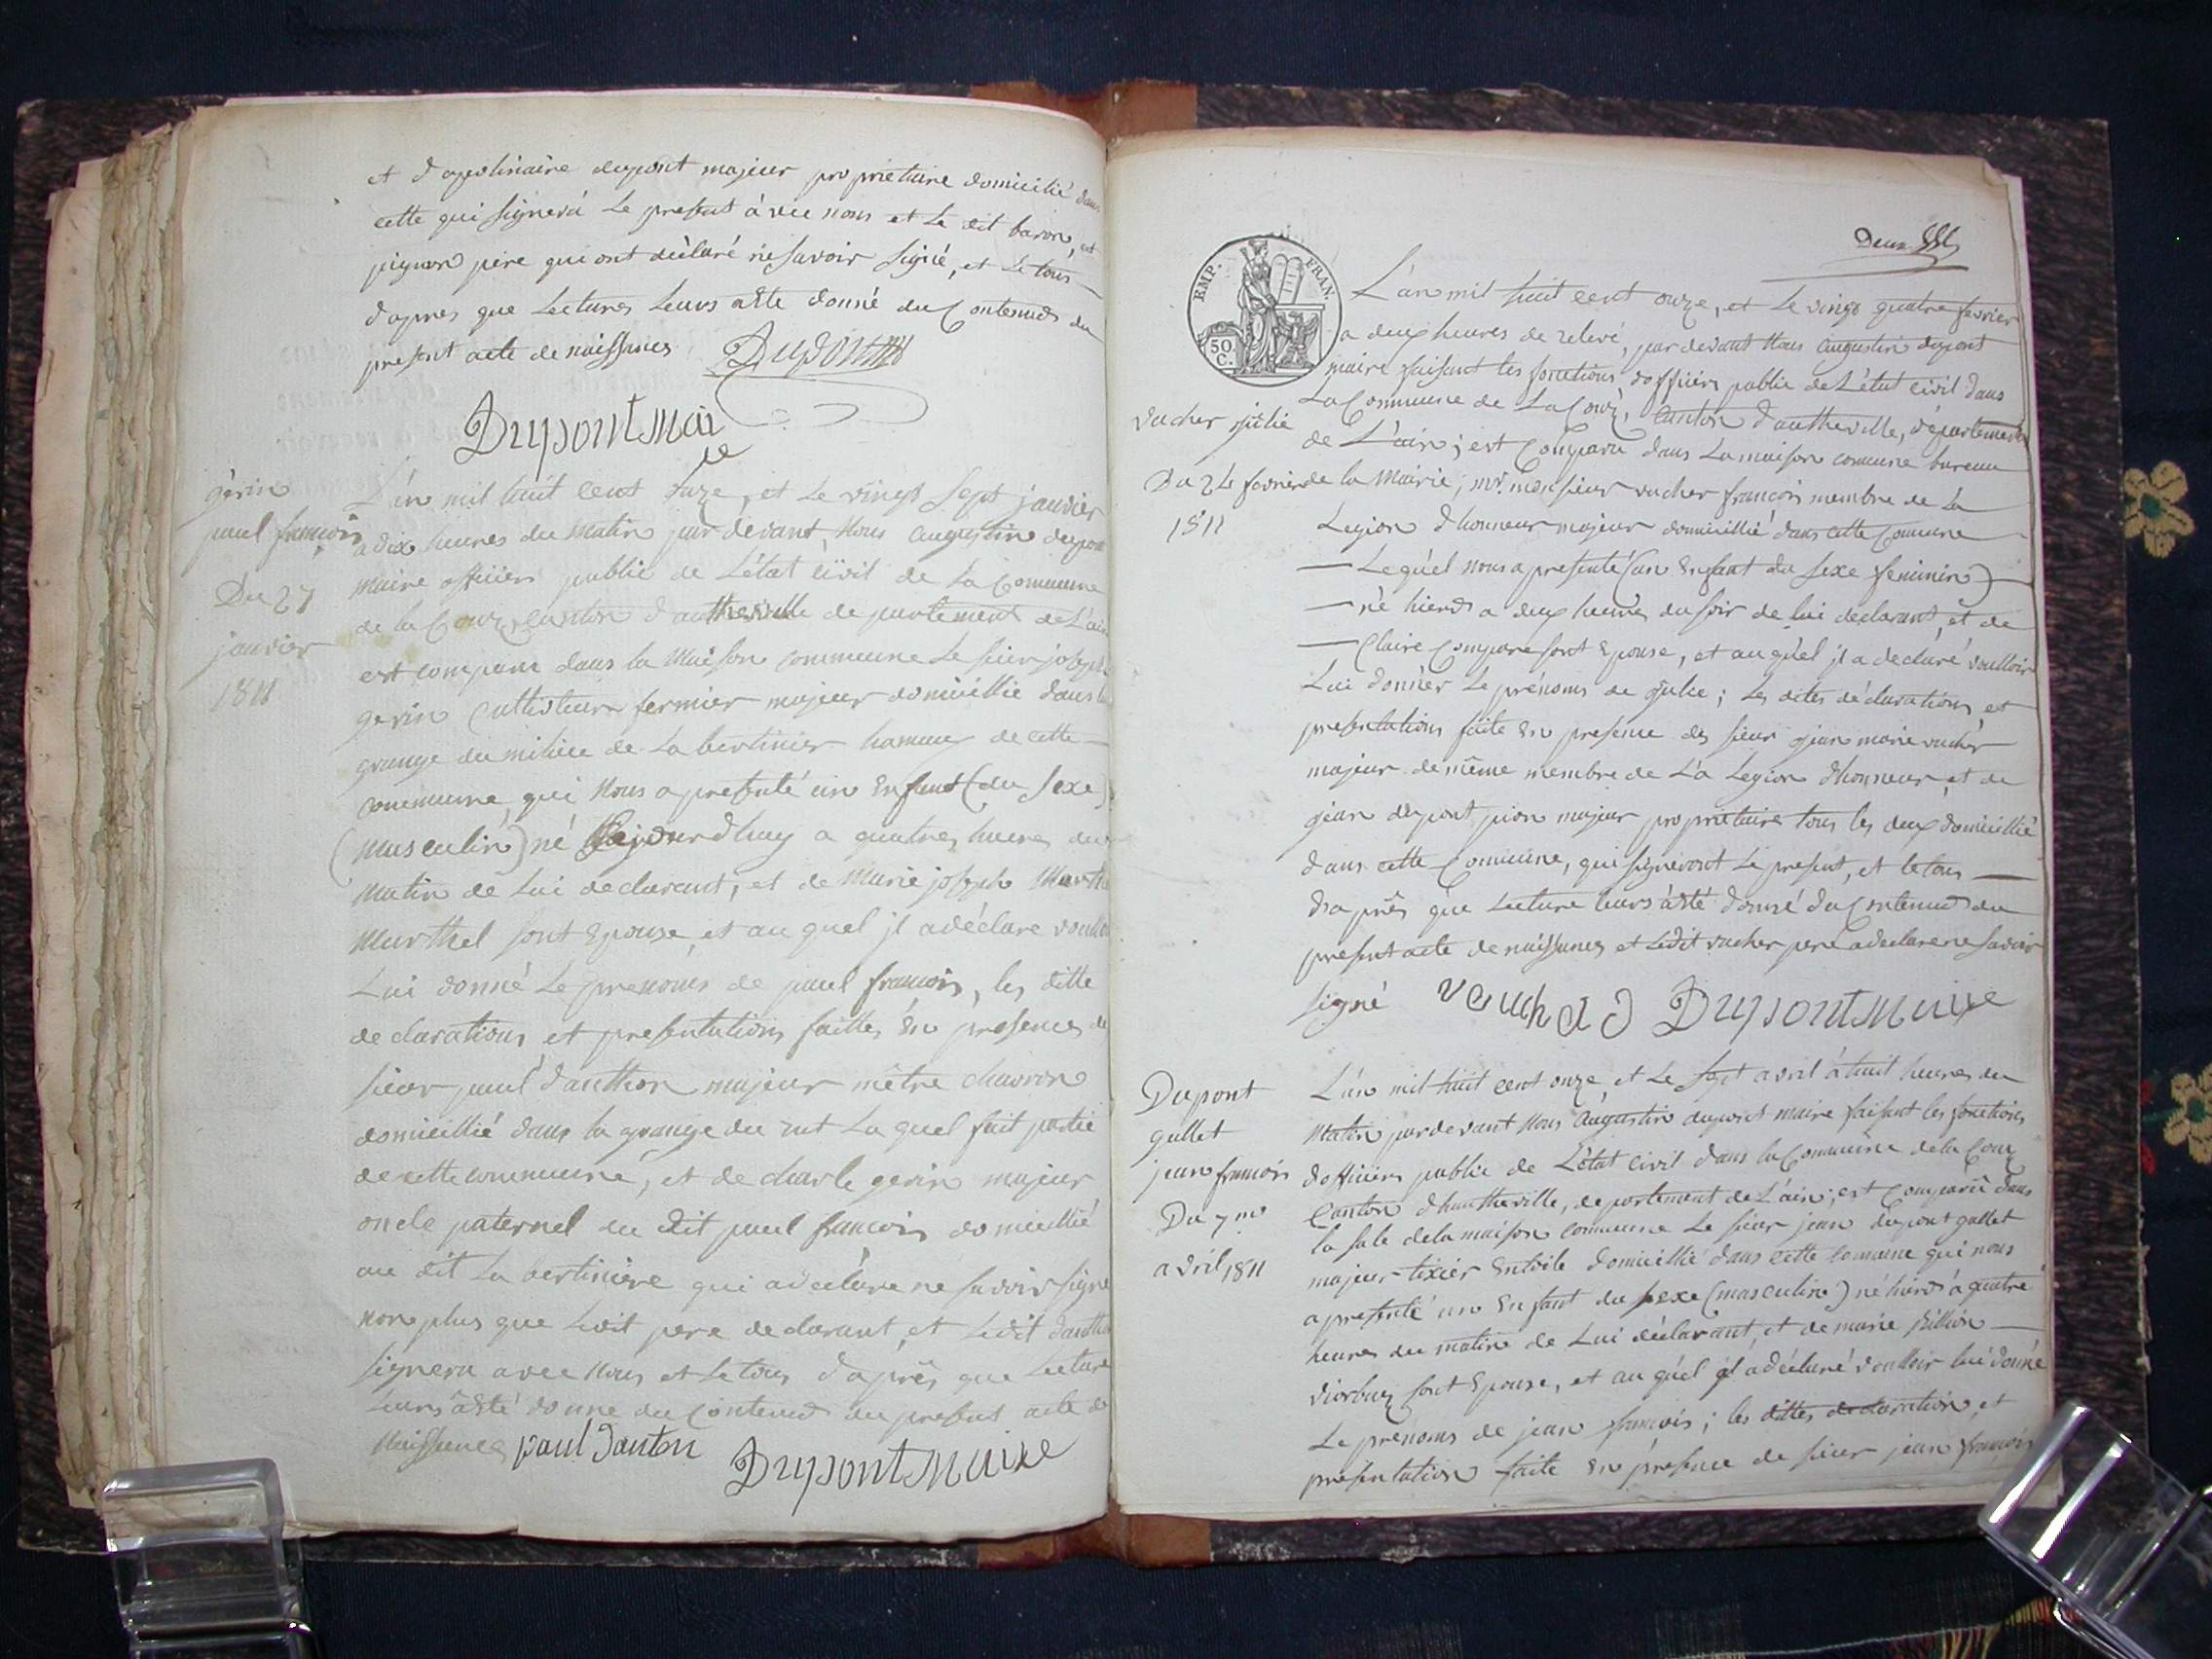 et d'apolinaire dupont majeur proprietaire domicilié dans
cette qui signera le present avec nous et le dit baron, et
pignon père qui ont déclaré ne savoir signé, et le tous
d'apres que lectures leurs a été donné du Contenud du
present acte de naissances Dupont
Dupont Maire
gerin
paul françois
Du 27
janvier
1811
L'an mil huit cent onze, et le vingt sept janvier
a dix heures du matin par devant Nous augustin dupont
maire officier public de L'état civil de la Commune
de la Couz Canton d'autheville departement de L'ain
est comparu dans la Maison commune Le sieur joseph
gerin Cultivteur fermier majeur domicillié dans la
grange du milieu de La bertinier hameau de cette
commune, qui Nous a presenté un Enfant (du sexe)
(masculin) né aujourdhuy a quatres heures du
matin de Lui declarant, et de Marie joseph Marth
Marthel sont Epouse et au quel jl a déclare voulloir
Lui donné Le prenoms de paul francois, les ditte
declarations et presentations faittes En presences de
sieur paul danthon majeur mêtre charron
domicillié dans la grange du rut La quel fait partie
de cette commune, et de charle gerin majeur
oncle paternel du dit paul francois domicillié
au dit La bertinière qui a declare ne savoir signe
non plus que ledit pere declarant, et ledit danthon
signera avec nous et le tous d'après que Lecture
Leurs a été donne du Contenud du present acte de
Naissances paul danton Dupont Maire
Deux
EMP. FRAN.
50
C.
vacher julie
Du 24 fevrier
1811
L'an mil huit cent onze, et Le vingt quatre fevrier
a deux heures de relevé, par devant Nous augustin dupont
maire faisant les fonctions d'officiers public de L'état civil dans
La Commune de La Couz, Canton d'autheville, département
de L'ain; est Comparu dans La maison comune bureau
de la Mairie, mr. monsieur vacher francois membre de La
Legion d'honneur majeur domicillié dans cette Commune
Le quel nous a presenté (un Enfant du sexe feminin)
né hierd a deux heures du soir de lui declarant, et de
Claire Compare sont Epouse, et au quel jl a declaré voulloir
Lui donner Le prénoms de julie; Les dites déclarations, et
presentations faite En presence des sieur jean marie vacher
majeur de même membre de La Legion d'honneur, et de
jean dupont pion majeur proprietaire tous les deux domicillié
dans cette Commune, qui signeront Le present, et le tous
d'après que Lecture leurs a été donné du Contenud du
present acte de naissances et Ledit vacher pere a declare ne savoir
signé Dupont Maire
Dupont
gallet
jean francois
Du 7me
avril 1811
L'an mil huit cent onze et Le sept avril a huit heures du
matin par devant Nous augustin dupont maire faisant les fonctions
d'officiers public de L'état civil dans la Commune de la Couz
Canton d'hautheville, departement de L'ain; est Comparu dans
la sale de la maison commune Le sieur jean dupont gallet
majeur tixier En toile domicillié dans cette comune qui nous
a presenté un Enfant du sexe (masculin) né hierd a quatre
heures du matin de Lui déclarant, et de marie
sont Epouse, et au quel jl a déclaré voulloir lui donné
Le prénoms de jean francois; les dittes declaration, et
presentation faite En présence de sieur jean francois